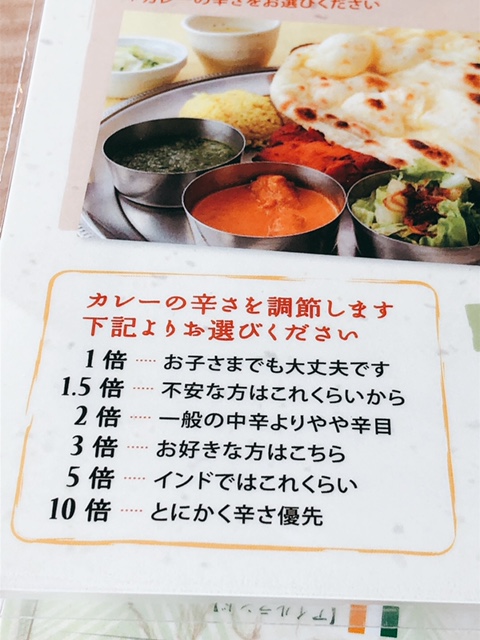 カレーの辛さをお選びください
カレーの辛さを調節します
下記よりお選びください
1倍 ····· お子さまでも大丈夫です
1.5倍 ····· 不安な方はこれくらいから
2倍 ····· 一般の中辛よりやや辛目
3倍 ····· お好きな方はこちら
5倍 ····· インドではこれくらい
10倍 ····· とにかく辛さ優先
【アイルランド】